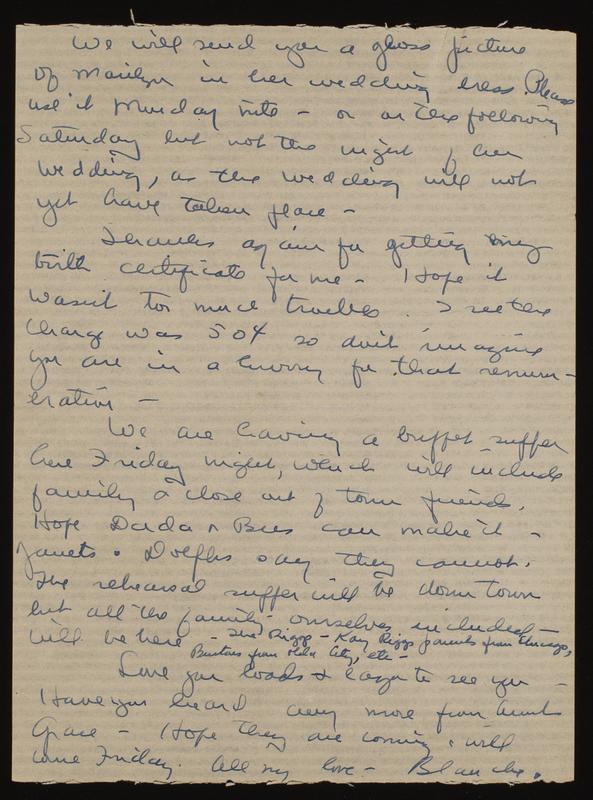 We will send you a gloss picture
of Marilyn in her wedding dress. Please
use it Monday nite - or on the following
Saturday but not the night of her
wedding, as the wedding will not
yet have taken place -
Thanks again for getting my
birth certificate for me - Hope it
wasn't too much trouble. I see the
charge was 50¢ so don't imagine
you are in a hurry for that remun-
eration -
We are having a buffet supper
here Friday night, which will include
family & close out of town friends.
Hope Dada & Bus can make it -
Janets & Dolphs say they cannot.
The rehearsal supper will be down town
but all the family - ourselves included -
will be here - The Riggs - Kay Riggs parents from Chicago,
Burtons from City, etc -
Love you loads & eager to see you -
Have you heard any more from Aunt
Grace - Hope they are coming & will
come Friday. All my love - Blanche.